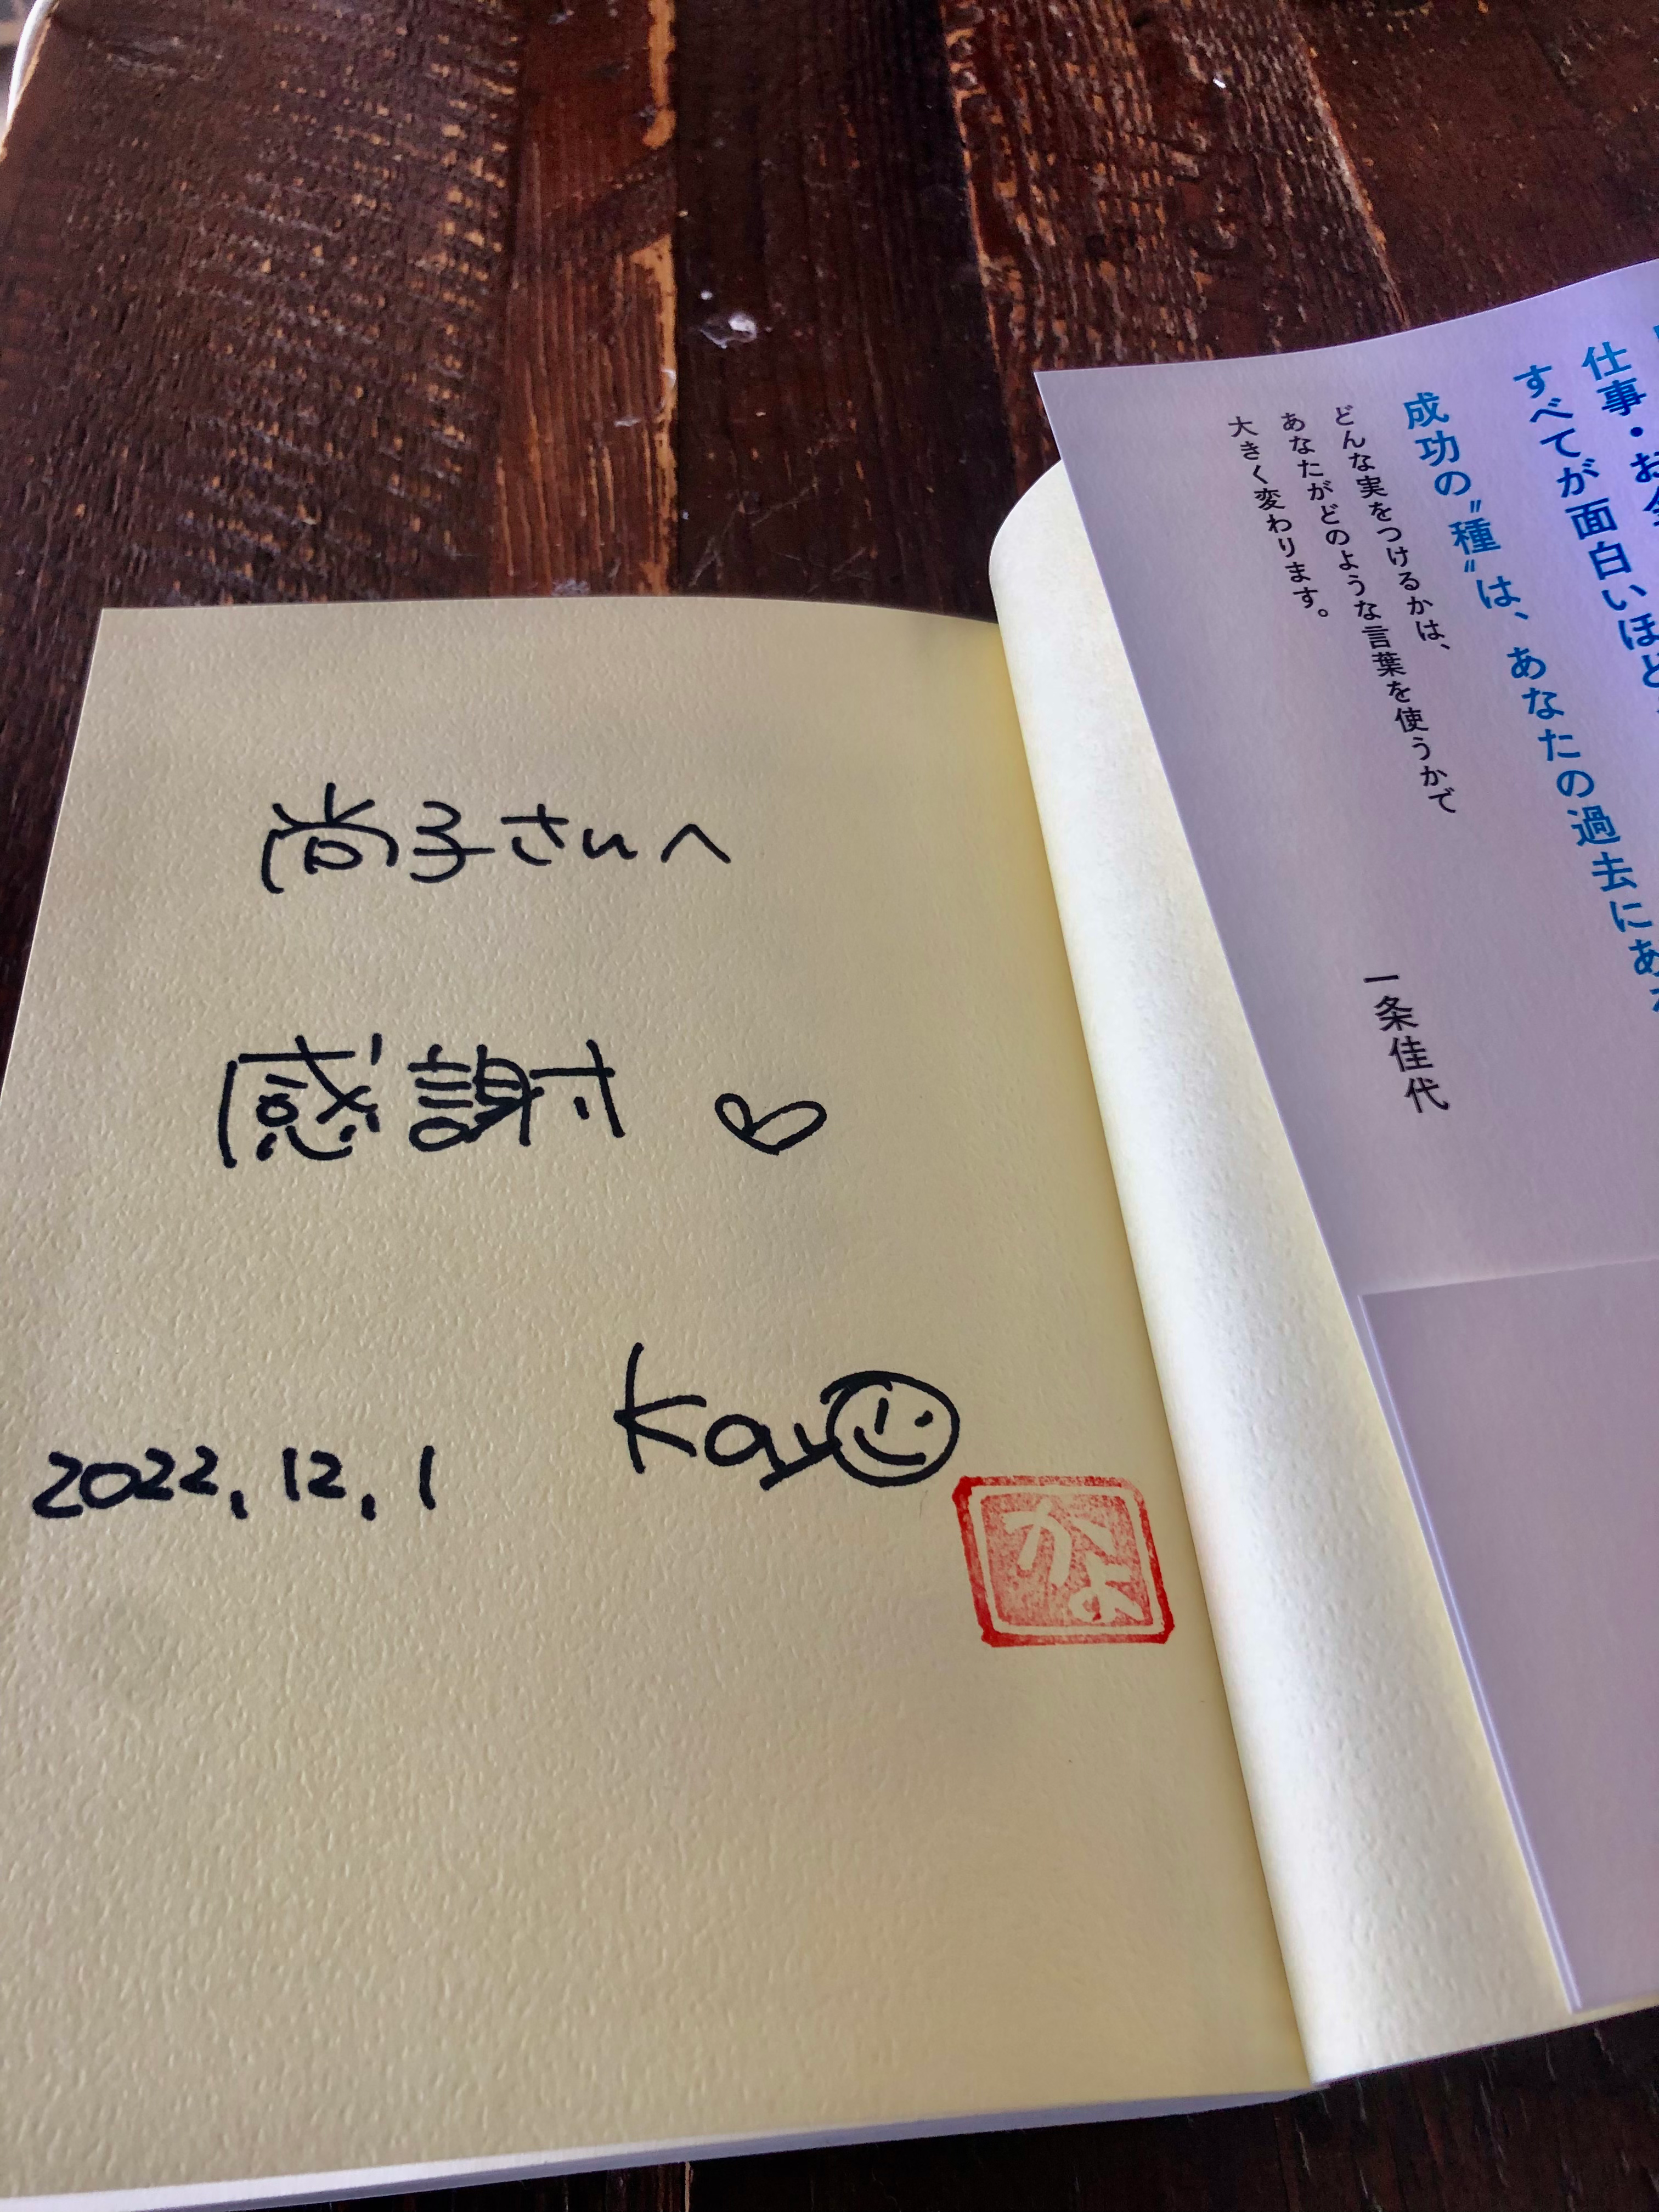 尚子さんへ
感謝♡
Kayo
2022.12.1
かよ
仕事・お
すべてが面白いほど
成功の〝種〟は、あなたの過去にあ
どんな実をつけるかは、
あなたがどのような言葉を使うかで
大きく変わります。
一条佳代